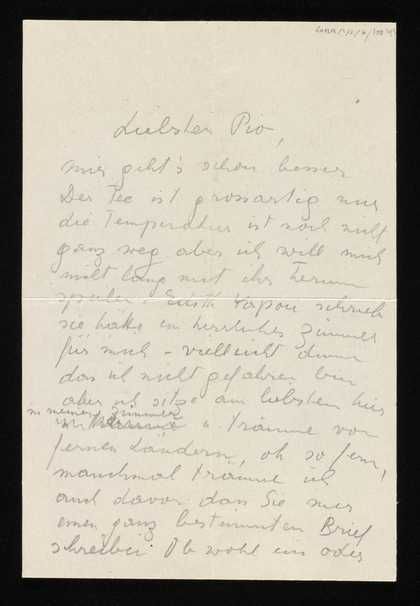 Liebster Pio,
mir geht's schon besser
Der Tee ist grossartig nur
die Temperatur ist noch nicht
ganz weg aber ich will mich
nicht lang mit ihr herum
spielen. Edith Yapou schrieb
sie hätte ein herrliches Zimmer
für mich - vielleicht dumm
das ich nicht gefahren bin
aber ich sitze am liebsten hier
in meinem Zimmer
u. träume von
fernen Ländern, oh so fern,
manchmal träume ich
auch davon dass Sie mir
einen ganz bestimmten Brief
schreiben Ob wohl ein oder